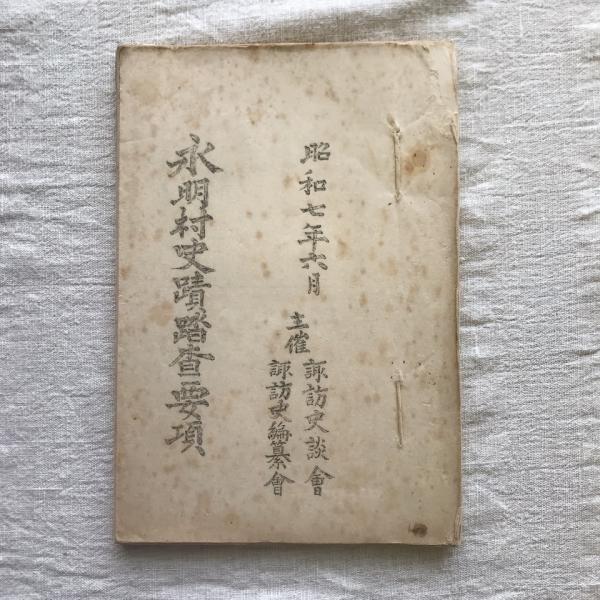 昭和七年六月
主催
諏訪史談會
諏訪史編纂會
永明村史蹟踏査要項